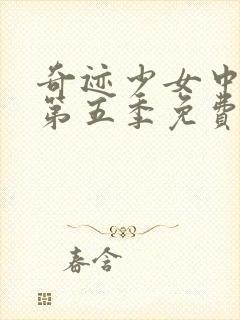 奇迹少女中
第五季免費
春含